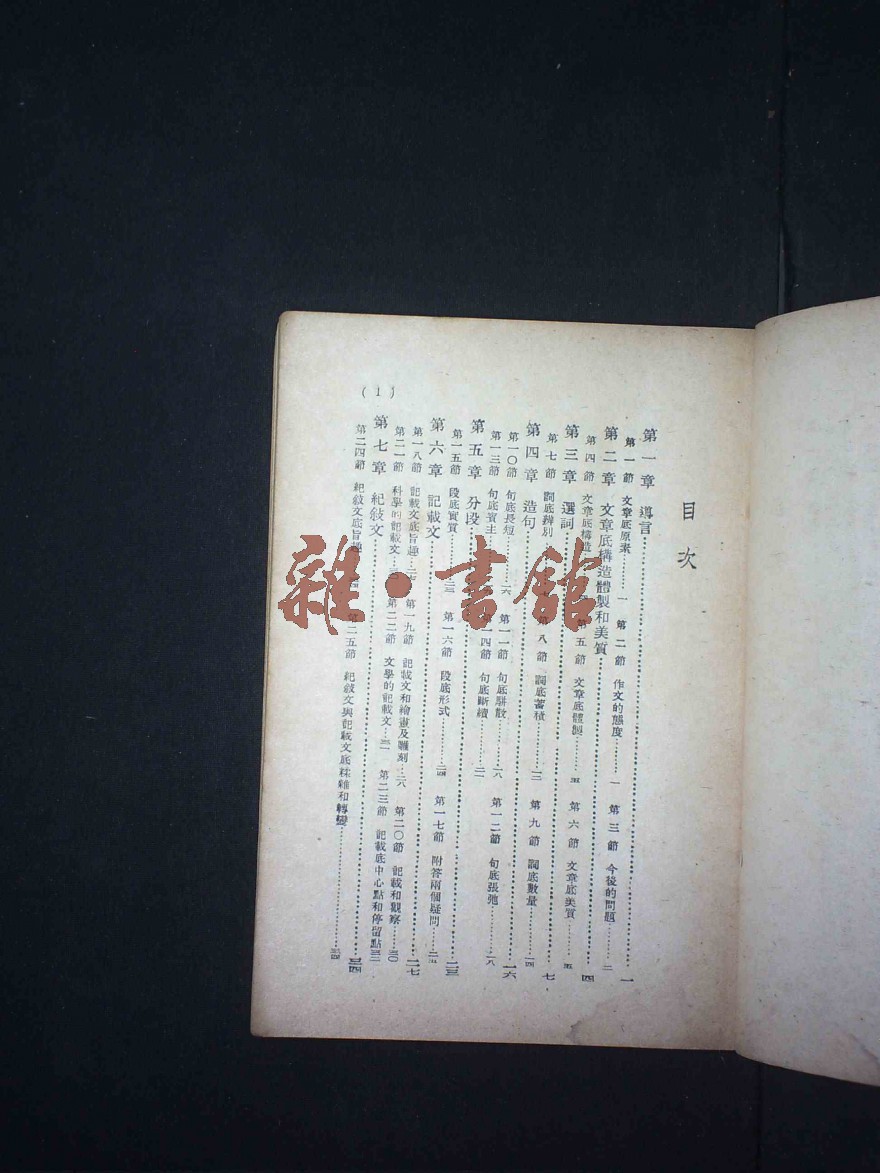 目次
第一章 導言……一
第一節 文章底原素……一 第二節 作文的態度……一 第三節 今後的問題……二
第二章 文章底構造體製和美質……四
第四節 文章底構造 第五節 文章底體製……五 第六節 文章底美質……五
第三章 選詞……七
第七節 詞底辨別 第八節 詞底蓄積……一三 第九節 詞底數量……一四
第四章 造句……一六
第一〇節 句底長短……一六 第一一節 句底駢散……一八 第一二節 句底張弛……一八
第一三節 句底賓主 第一四節 句底斷續……二一
第五章 分段……二三
第一五節 段底實質……二三 第一六節 段底形式……二四 第一七節 附答兩個疑問……二五
第六章 記載文……二七
第一八節 記載文底旨趣……二七 第一九節 記載文和繪畫及雕刻……二八 第二〇節 記載和觀察……三〇
第二一節 科學的記載文 第二二節 文學的記載文……三一 第二三節 記載底中心點和停留點……三二
第七章 紀敍文……三四
第二四節 紀敍文底旨趣 第二五節 紀敍文與記載文底糅雜和轉變……三四
(1)
雜·書館